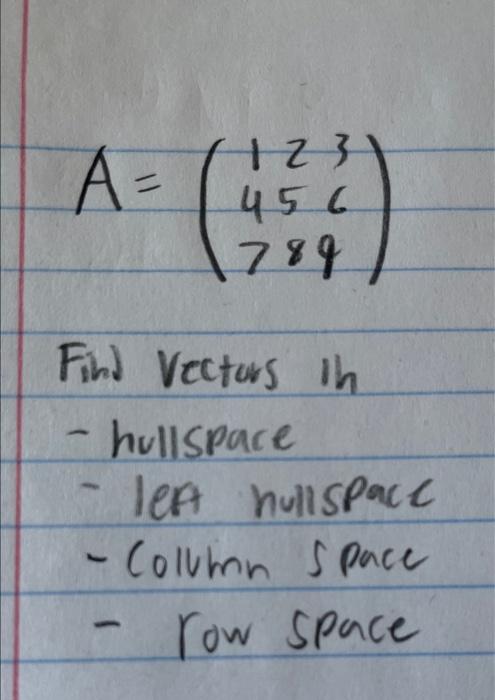 A = ( 1 2 3
4 5 6
7 8 9 )
Find vectors in
- nullspace
- left nullspace
- Column space
- row space